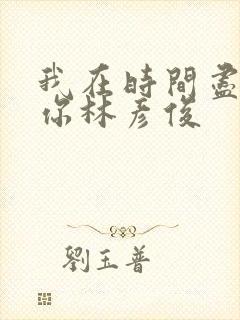 我在時間盡
你林彥俊
劉玉普